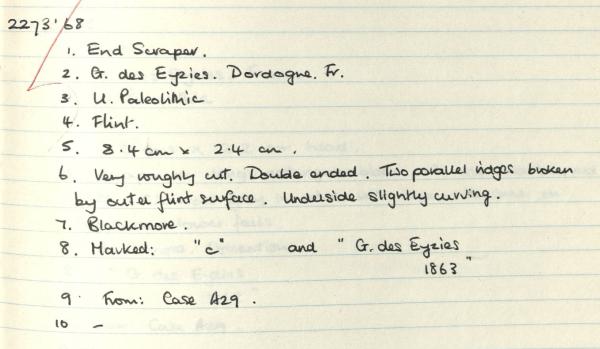 2273'68
1. End Scraper.
2. G. des Eyzies. Dordogne. Fr.
3. U. Paleolithic
4. Flint.
5. 8.4cm x 2.4 cm.
6. Very roughly cut. Double ended. Two parallel ridges broken
by outer flint surface. Underside slightly curving.
7. Blackmore.
8. Marked: "c" and "G. des Eyzies
1863"
9 From: Case A29.
10 -